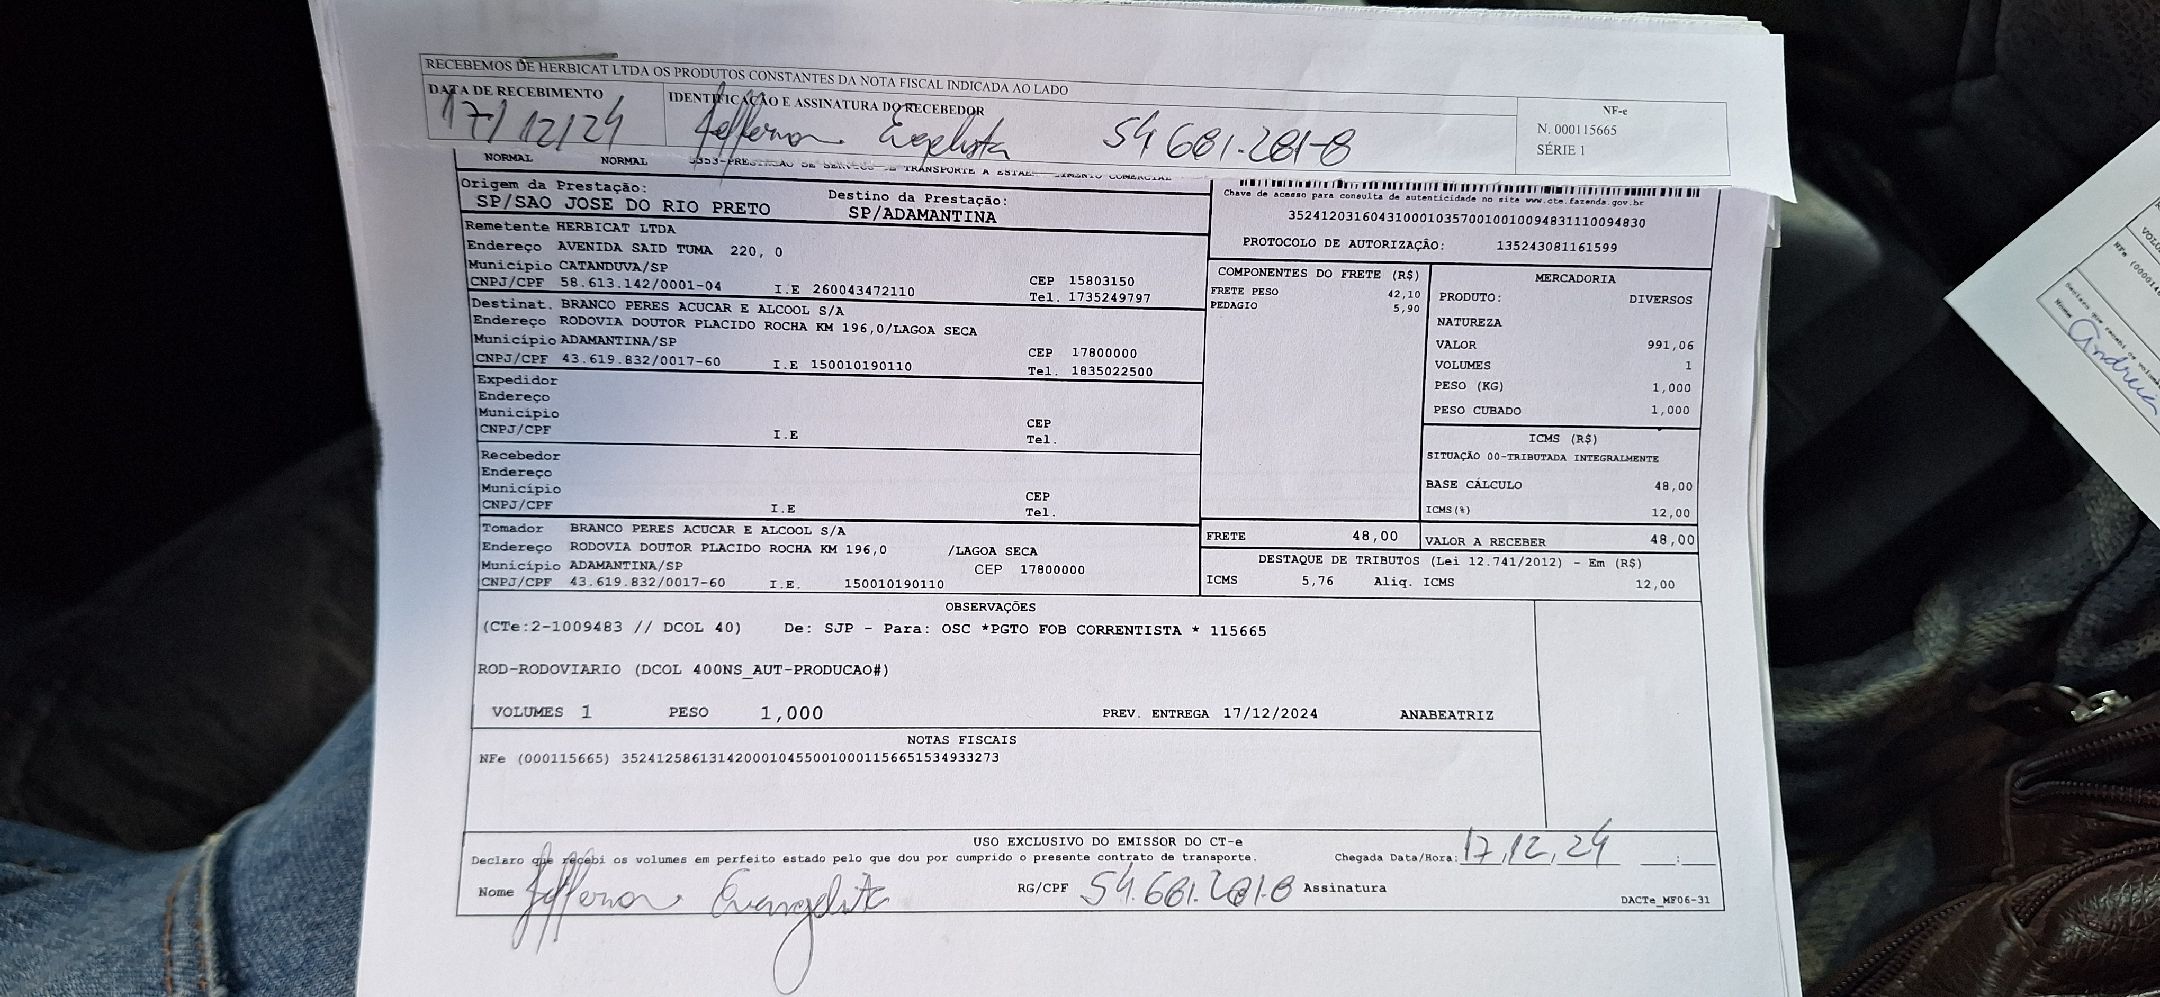 RECEBEMOS DE HERBICAT LTDA OS PRODUTOS CONSTANTES DA NOTA FISCAL INDICADA AO LADO
DATA DE RECEBIMENTO IDENTIFICAÇÃO E ASSINATURA DO RECEBEDOR
17/12/24 Jefferson 54 681.281-8
NF-e
N. 000115665
SÉRIE 1
NORMAL NORMAL 5353-PRESTACAO DE SERVICO DE TRANSPORTE A ESTABELECIMENTO COMERCIAL
Origem da Prestação: Destino da Prestação:
SP/SAO JOSE DO RIO PRETO SP/ADAMANTINA
Chave de acesso para consulta de autenticidade no site www.cte.fazenda.gov.br
35241203160431000103570010010094831110094830
PROTOCOLO DE AUTORIZAÇÃO: 135243081161599
Remetente HERBICAT LTDA
Endereço AVENIDA SAID TUMA 220, 0
Município CATANDUVA/SP CEP 15803150
CNPJ/CPF 58.613.142/0001-04 I.E 260043472110 Tel. 1735249797
Destinat. BRANCO PERES ACUCAR E ALCOOL S/A
Endereço RODOVIA DOUTOR PLACIDO ROCHA KM 196,0/LAGOA SECA
Município ADAMANTINA/SP CEP 17800000
CNPJ/CPF 43.619.832/0017-60 I.E 150010190110 Tel. 1835022500
Expedidor
Endereço
Município CEP
CNPJ/CPF I.E Tel.
Recebedor
Endereço
Município CEP
CNPJ/CPF I.E Tel.
Tomador BRANCO PERES ACUCAR E ALCOOL S/A
Endereço RODOVIA DOUTOR PLACIDO ROCHA KM 196,0 /LAGOA SECA
Município ADAMANTINA/SP CEP 17800000
CNPJ/CPF 43.619.832/0017-60 I.E. 150010190110
COMPONENTES DO FRETE (R$)
FRETE PESO 42,10
PEDAGIO 5,90
MERCADORIA
PRODUTO: DIVERSOS
NATUREZA
VALOR 991,06
VOLUMES 1
PESO (KG) 1,000
PESO CUBADO 1,000
ICMS (R$)
SITUAÇÃO 00-TRIBUTADA INTEGRALMENTE
BASE CÁLCULO 48,00
ICMS(%) 12,00
FRETE 48,00 VALOR A RECEBER 48,00
DESTAQUE DE TRIBUTOS (Lei 12.741/2012) - Em (R$)
ICMS 5,76 Aliq. ICMS 12,00
OBSERVAÇÕES
(CTe:2-1009483 // DCOL 40) De: SJP - Para: OSC *PGTO FOB CORRENTISTA * 115665
ROD-RODOVIARIO (DCOL 400NS_AUT-PRODUCAO#)
VOLUMES 1 PESO 1,000 PREV. ENTREGA 17/12/2024 ANABEATRIZ
NOTAS FISCAIS
NFe (000115665) 35241258613142000104550010001156651534933273
USO EXCLUSIVO DO EMISSOR DO CT-e
Declaro que recebi os volumes em perfeito estado pelo que dou por cumprido o presente contrato de transporte. Chegada Data/Hora: 17,12,24 __:__
Nome Jefferson Evangelista RG/CPF 54.681.281-8 Assinatura
DACTe_MF06-31
Nome Andreia